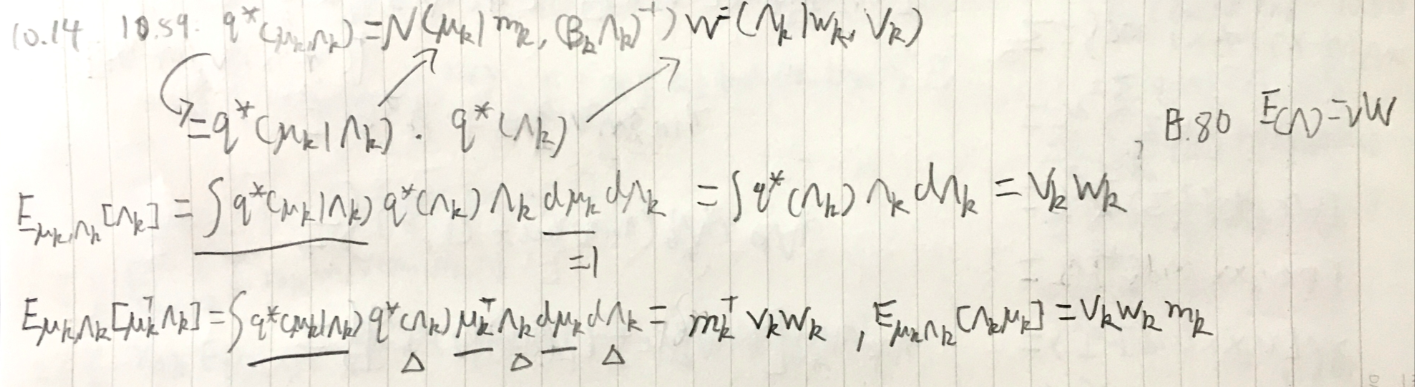 10.14 10.59. q*(μₖ,Λₖ)=N(μₖ|mₖ,(βₖΛₖ)⁻¹) W(Λₖ|wₖ,νₖ)
=q*(μₖ|Λₖ)·q*(Λₖ) , B.80 E(Λ)=νW
E_{μₖ,Λₖ}[Λₖ]=∫q*(μₖ|Λₖ)q*(Λₖ)ΛₖdμₖdΛₖ =∫q*(Λₖ)ΛₖdΛₖ=νₖwₖ
=1
E_{μₖ,Λₖ}[μₖᵀΛₖ]=∫q*(μₖ|Λₖ)q*(Λₖ)μₖᵀΛₖdμₖdΛₖ= mₖᵀνₖwₖ , E_{μₖΛₖ}[Λₖμₖ]=νₖwₖmₖ